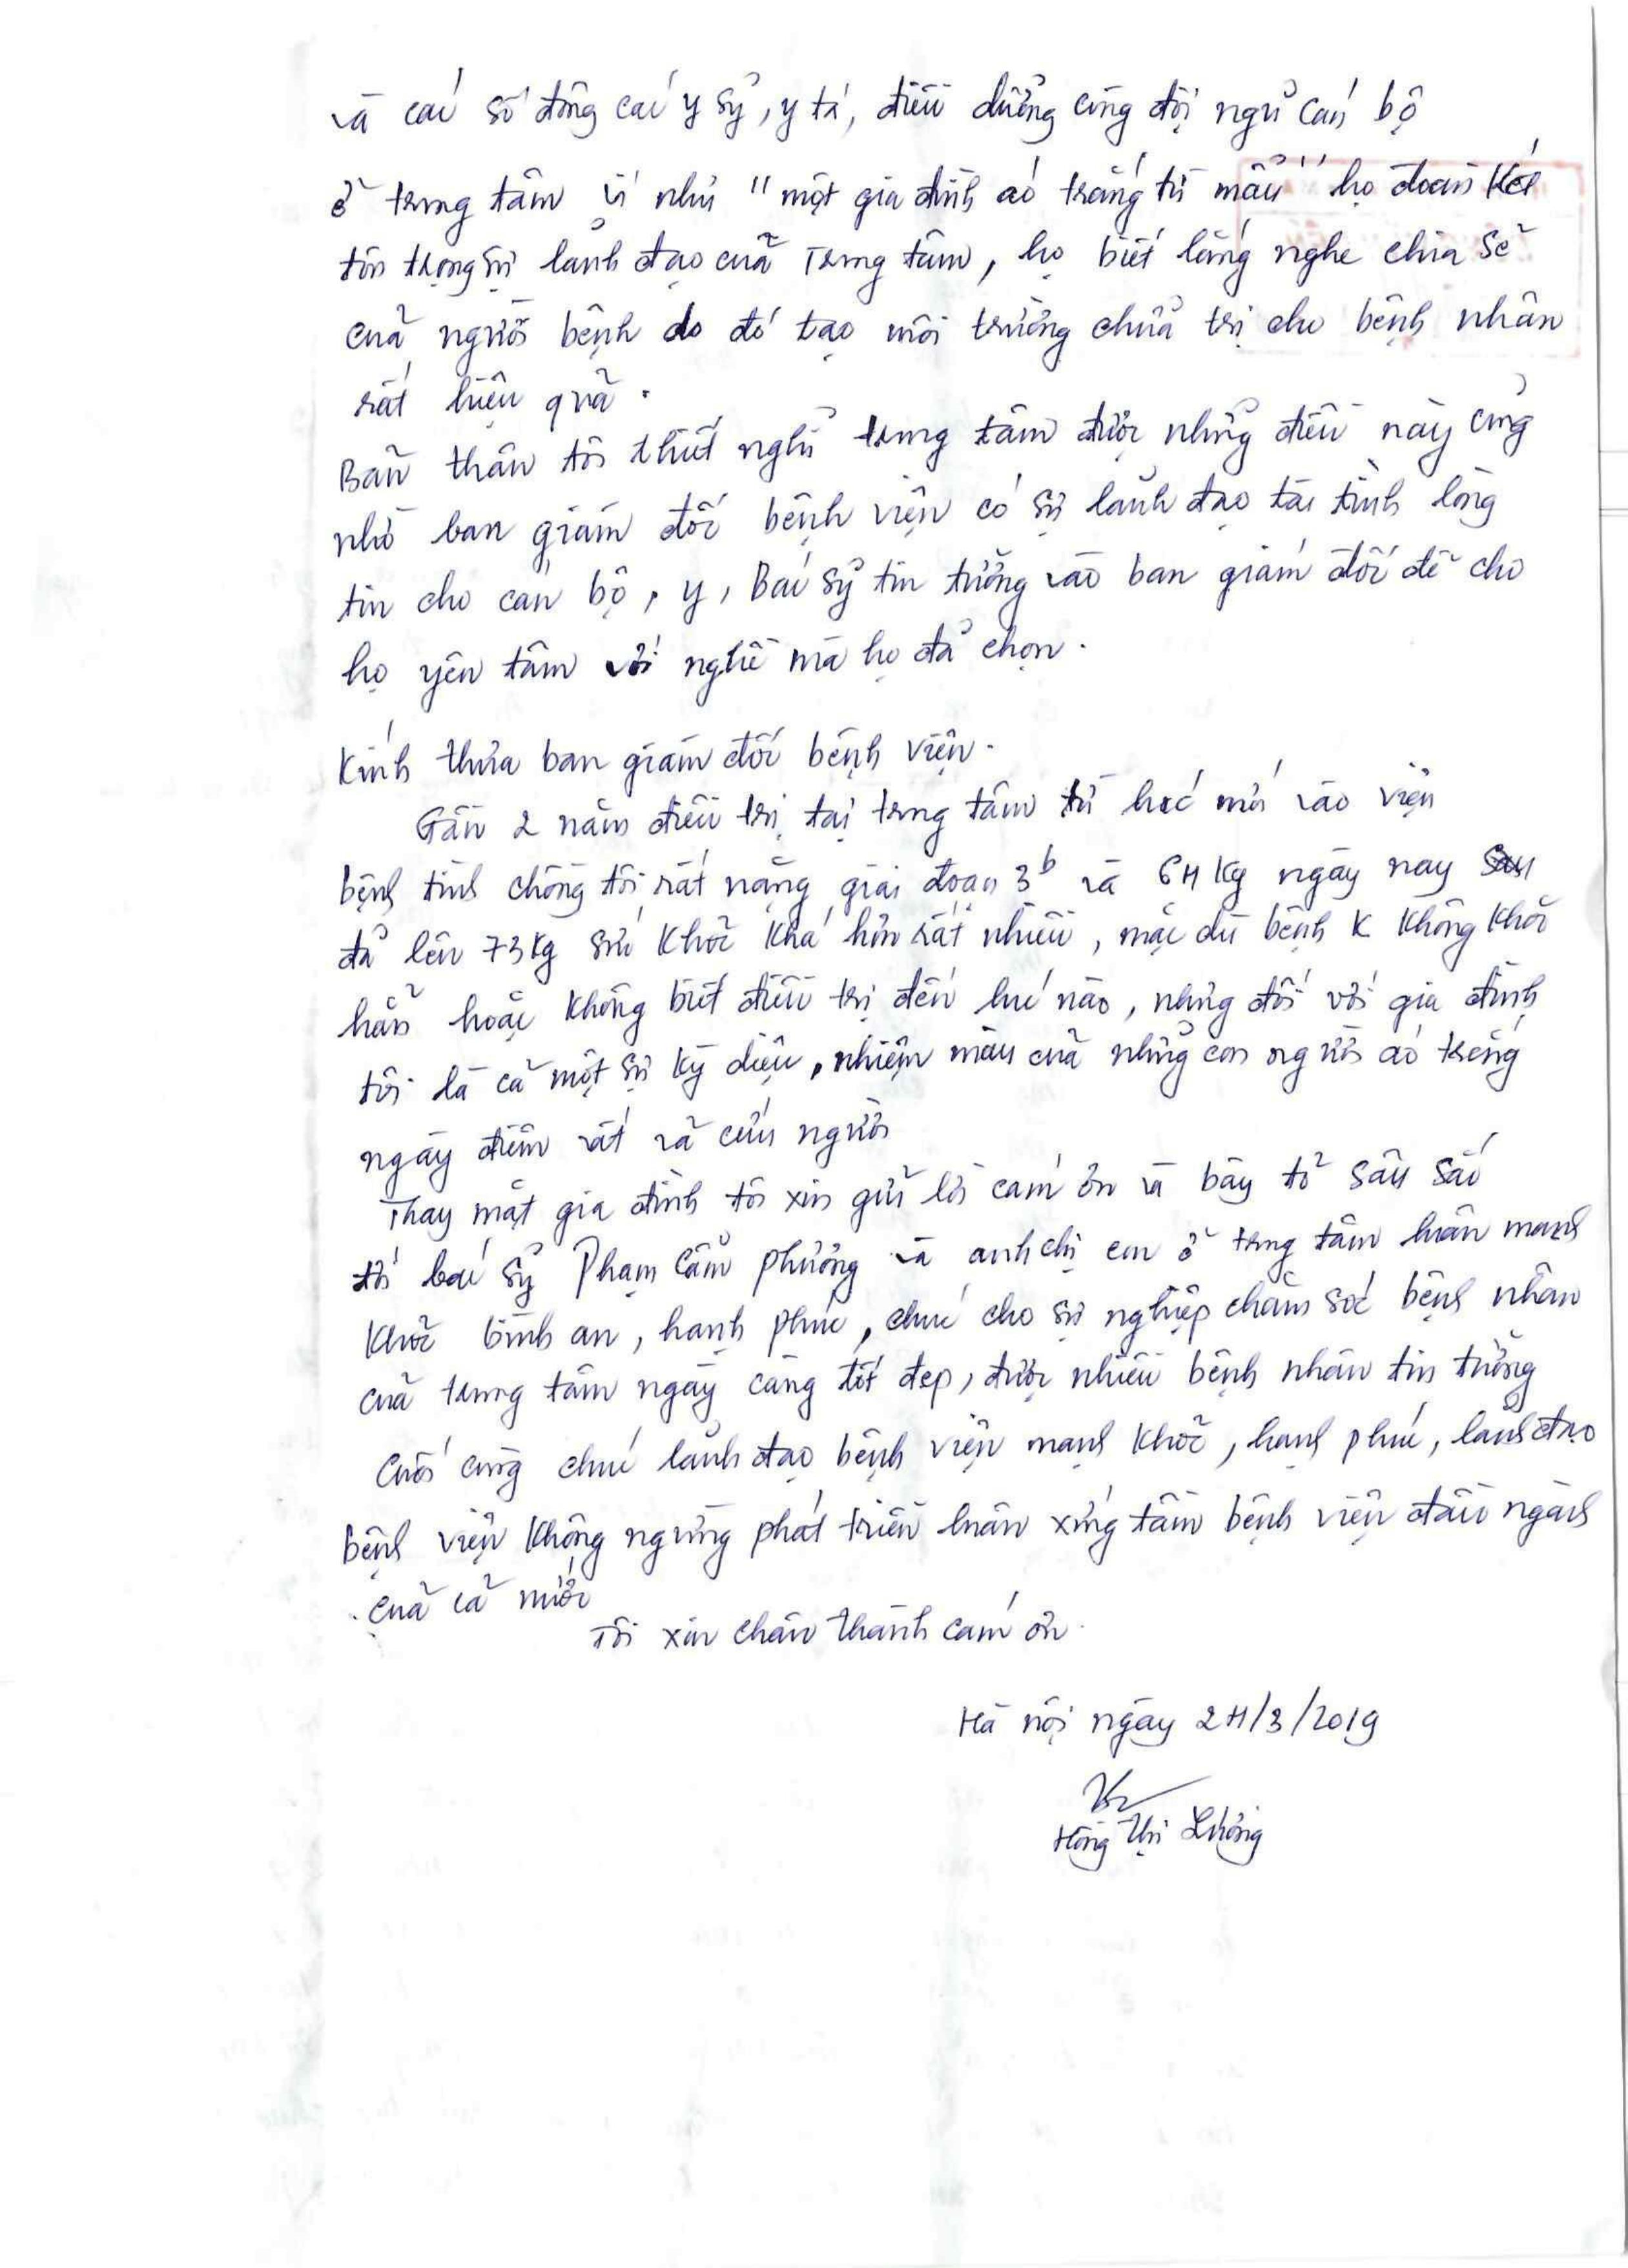 và các số đông các y sỹ, y tá, điều dưỡng cùng đội ngũ cán bộ
ở trung tâm ví như "một gia đình áo trắng từ mẫu" họ đoàn kết
tôn trọng sự lãnh đạo của Trung tâm, họ biết lắng nghe chia sẽ
của người bệnh do đó tạo môi trường chữa trị cho bệnh nhân
rất hiệu quả.
Bản thân tôi thiết nghĩ trung tâm được những điều này cũng
nhờ ban giám đốc bệnh viện có sự lãnh đạo tài tình lòng
tin cho cán bộ, y, Bác sỹ tin tưởng vào ban giám đốc để cho
họ yên tâm với nghề mà họ đã chọn.
Kính thưa ban giám đốc bệnh viện.
Gần 2 năm điều trị tại trung tâm từ lúc mới vào viện
bệnh tình chồng tôi rất nặng giai đoạn 3b và 64 kg ngày nay
đã lên 73kg sức khoẻ khá hơn rất nhiều, mặc dù bệnh K không khỏi
hẳn hoặc không biết điều trị đến lúc nào, nhưng đối với gia đình
tôi là cả một sự kỳ diệu, nhiệm màu của những con người áo trắng
ngày đêm vất vả cứu người
Thay mặt gia đình tôi xin gửi lời cảm ơn và bày tỏ sâu sắc
tới bác sỹ Phạm Cẩm Phương và anh chị em ở trung tâm luôn mạnh
khoẻ bình an, hạnh phúc, chúc cho sự nghiệp chăm sóc bệnh nhân
của trung tâm ngày càng tốt đẹp, được nhiều bệnh nhân tin tưởng
Cuối cùng chúc lãnh đạo bệnh viện mạnh khoẻ, hạnh phúc, lãnh đạo
bệnh viện không ngừng phát triển luôn xứng tầm bệnh viện đầu ngành
của cả nước
Tôi xin chân thành cảm ơn.
Hà nội ngày 24/3/2019
Hồng Thị Lương